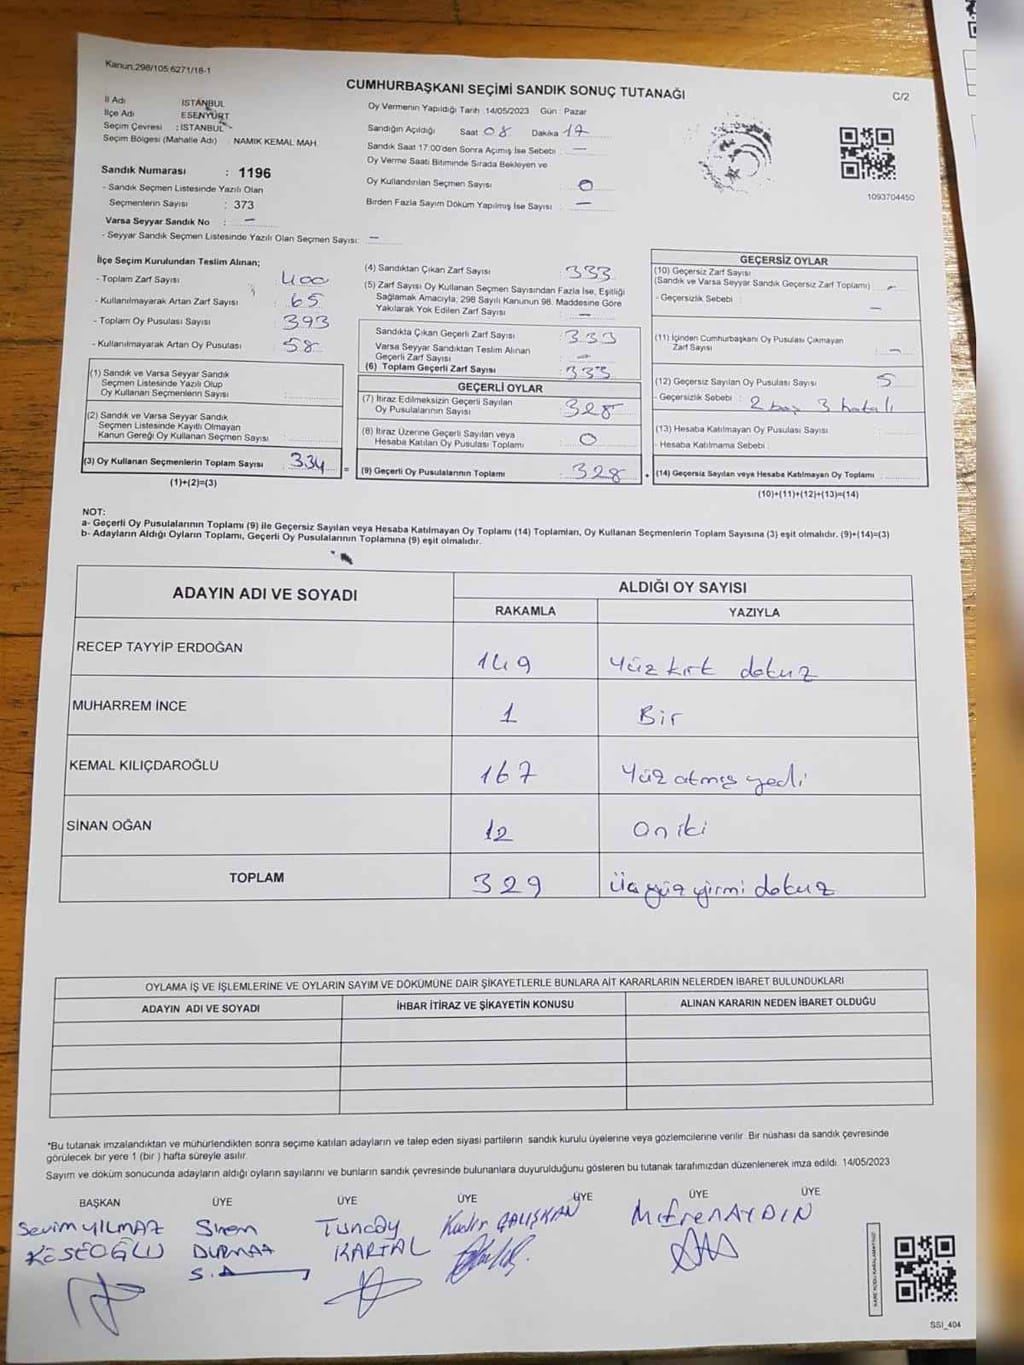 Kanun:298/105;6271/18-1
CUMHURBAŞKANI SEÇİMİ SANDIK SONUÇ TUTANAĞI
C/2
İl Adı İSTANBUL
İlçe Adı ESENYURT
Seçim Çevresi : İSTANBUL
Seçim Bölgesi (Mahalle Adı) : NAMIK KEMAL MAH.
Sandık Numarası : 1196
- Sandık Seçmen Listesinde Yazılı Olan
Seçmenlerin Sayısı : 373
Varsa Seyyar Sandık No : —
- Seyyar Sandık Seçmen Listesinde Yazılı Olan Seçmen Sayısı: —
Oy Vermenin Yapıldığı Tarih : 14/05/2023 Gün : Pazar
Sandığın Açıldığı Saat 08 Dakika 17
Sandık Saat 17:00'den Sonra Açımış İse Sebebi : —
Oy Verme Saati Bitiminde Sırada Bekleyen ve
Oy Kullandırılan Seçmen Sayısı : 0
Birden Fazla Sayım Döküm Yapılmış İse Sayısı : —
1093704450
İlçe Seçim Kurulundan Teslim Alınan;
- Toplam Zarf Sayısı : 400
- Kullanılmayarak Artan Zarf Sayısı : 65
- Toplam Oy Pusulası Sayısı : 393
- Kullanılmayarak Artan Oy Pusulası : 58
(1) Sandık ve Varsa Seyyar Sandık
Seçmen Listesinde Yazılı Olup
Oy Kullanan Seçmenlerin Sayısı :
(2) Sandık ve Varsa Seyyar Sandık
Seçmen Listesinde Kayıtlı Olmayan
Kanun Gereği Oy Kullanan Seçmen Sayısı :
(3) Oy Kullanan Seçmenlerin Toplam Sayısı : 334 =
(1)+(2)=(3)
(4) Sandıktan Çıkan Zarf Sayısı : 333
(5) Zarf Sayısı Oy Kullanan Seçmen Sayısından Fazla İse, Eşitliği
Sağlamak Amacıyla; 298 Sayılı Kanunun 98. Maddesine Göre
Yakılarak Yok Edilen Zarf Sayısı : —
Sandıkta Çıkan Geçerli Zarf Sayısı : 333
Varsa Seyyar Sandıktan Teslim Alınan
Geçerli Zarf Sayısı : —
(6) Toplam Geçerli Zarf Sayısı : 333
GEÇERLİ OYLAR
(7) İtiraz Edilmeksizin Geçerli Sayılan
Oy Pusulalarının Sayısı : 328
(8) İtiraz Üzerine Geçerli Sayılan veya
Hesaba Katılan Oy Pusulası Toplamı : 0
(9) Geçerli Oy Pusulalarının Toplamı : 328 +
GEÇERSİZ OYLAR
(10) Geçersiz Zarf Sayısı
(Sandık ve Varsa Seyyar Sandık Geçersiz Zarf Toplamı) : —
- Geçersizlik Sebebi : —
(11) İçinden Cumhurbaşkanı Oy Pusulası Çıkmayan
Zarf Sayısı : —
(12) Geçersiz Sayılan Oy Pusulası Sayısı : 5
- Geçersizlik Sebebi : 2 boş 3 hatalı
(13) Hesaba Katılmayan Oy Pusulası Sayısı :
- Hesaba Katılmama Sebebi :
(14) Geçersiz Sayılan veya Hesaba Katılmayan Oy Toplamı :
(10)+(11)+(12)+(13)=(14)
NOT:
a- Geçerli Oy Pusulalarının Toplamı (9) ile Geçersiz Sayılan veya Hesaba Katılmayan Oy Toplamı (14) Toplamları, Oy Kullanan Seçmenlerin Toplam Sayısına (3) eşit olmalıdır. (9)+(14)=(3)
b- Adayların Aldığı Oyların Toplamı, Geçerli Oy Pusulalarının Toplamına (9) eşit olmalıdır.
ADAYIN ADI VE SOYADI
ALDIĞI OY SAYISI
RAKAMLA YAZIYLA
RECEP TAYYİP ERDOĞAN 149 Yüz kırk dokuz
MUHARREM İNCE 1 Bir
KEMAL KILIÇDAROĞLU 167 Yüz atmış yedi
SİNAN OĞAN 12 On iki
TOPLAM 329 Üç yüz yirmi dokuz
OYLAMA İŞ VE İŞLEMLERİNE VE OYLARIN SAYIM VE DÖKÜMÜNE DAİR ŞİKAYETLERLE BUNLARA AİT KARARLARIN NELERDEN İBARET BULUNDUKLARI
ADAYIN ADI VE SOYADI İHBAR İTİRAZ VE ŞİKAYETİN KONUSU ALINAN KARARIN NEDEN İBARET OLDUĞU
*Bu tutanak imzalandıktan ve mühürlendikten sonra seçime katılan adayların ve talep eden siyasi partilerin sandık kurulu üyelerine veya gözlemcilerine verilir. Bir nüshası da sandık çevresinde
görülecek bir yere 1 (bir) hafta süreyle asılır.
Sayım ve döküm sonucunda adayların aldığı oyların sayılarını ve bunların sandık çevresinde bulunanlara duyurulduğunu gösteren bu tutanak tarafımızdan düzenlenerek imza edildi. 14/05/2023
BAŞKAN ÜYE ÜYE ÜYE ÜYE ÜYE ÜYE
Sevim YILMAZ
KÖSEOĞLU
DURMAZ
S.D
Tuncay
KARTAL
Kadir ÇALIŞKAN
AYDIN
SSI_404